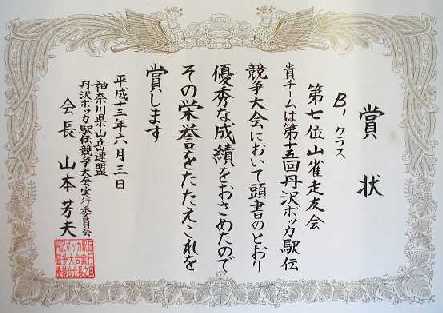 賞状
B1クラス
第七位山雀走友会
貴チームは第十五回丹沢ボッカ駅伝
競争大会において頭書のとおり
優秀な成績をおさめたので
その栄誉をたたえこれを
賞します
平成十三年六月三日
神奈川県山岳連盟
丹沢ボッカ駅伝競争大会実行委員会
会長 山本芳夫